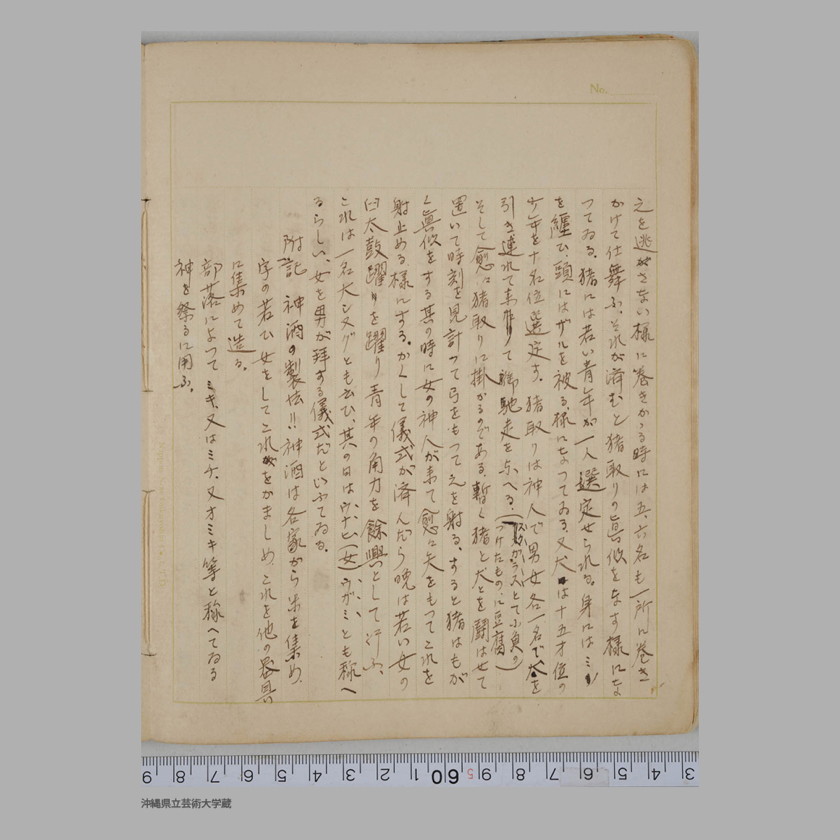 No.
之を逃がさない様に巻きかゝる時には五、六名も一所に巻き
かけて仕舞ふ、それが済むと猪取りの真似をなす様にな
つてゐる。猪には若い青年が一人選定せられる。身にはミノ
を纏ひ、頭にはザルを被る様になつてゐる又犬は十五才位の
少年を十名位選定す。猪取りは神人で男女各一名で犬を
引き連れて来て御馳走を与へる。(スクガラスとて小魚の
つけたもの、に豆腐)
そして愈々猪取りに掛かるのである。暫く猪と犬とを闘はせて
置いて時刻を見計つて弓をもつて之を射る、すると猪はもが
く真似をする其の時に女の神人が来て愈々矢をもつてこれを
射止める様にする。かくして儀式が済んだら晩は若い女の
臼太鼓躍りを躍り青年の角力を餘興として行ふ、
これは一名大シヌグとも云ひ、其の日はウナヒ(女)ウガミとも称へ
るらしい、女を男が拝する儀式だといふてゐる。
附記 神酒の製法!! 神酒は各家から米を集め、
字の若ひ女をしてこれをかましめ、これを他の器具
に集めて造る。
部落によつてミキ又はミチ、又オミキ等と称へてゐる
神を祭るに用ふ。
3 4 5 6 7 8 9 60 1 2 3 4 5 6 7 8 9
沖縄県立芸術大学蔵